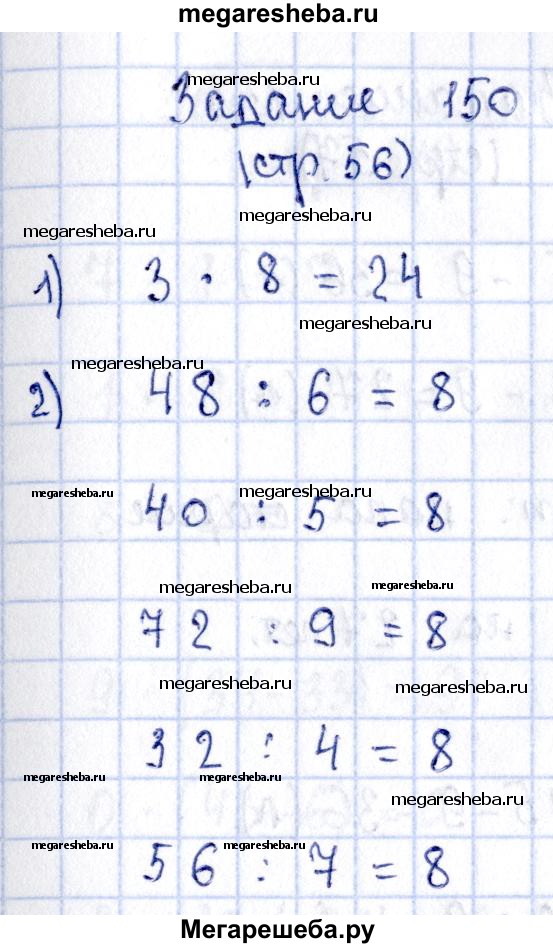 megaresheba.ru
megaresheba.ru
Задание 150
(стр. 56)
megaresheba.ru
megaresheba.ru
1) 3 · 8 = 24
megaresheba.ru
megaresheba.ru
2) 48 : 6 = 8
megaresheba.ru megaresheba.ru
40 : 5 = 8
megaresheba.ru megaresheba.ru
72 : 9 = 8
megaresheba.ru megaresheba.ru
32 : 4 = 8
megaresheba.ru megaresheba.ru
megaresheba.ru
megaresheba.ru megaresheba.ru
56 : 7 = 8
Мегарешеба.ру